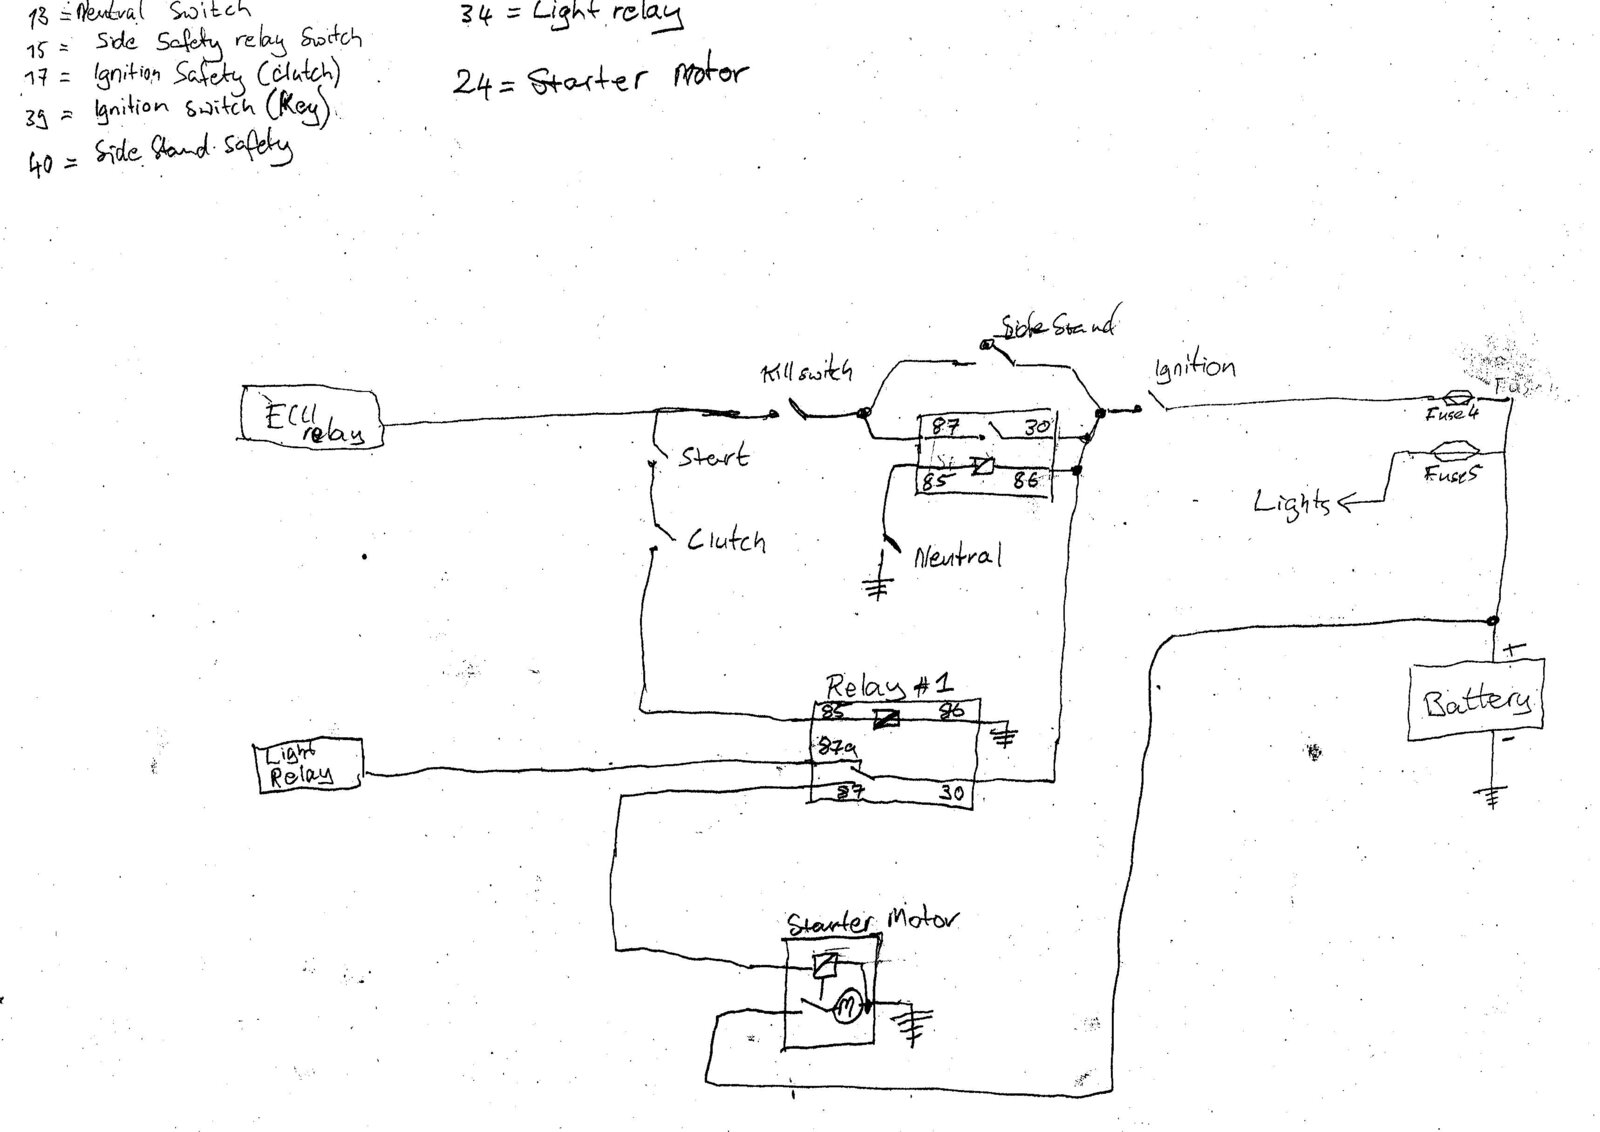 13 = Neutral Switch
15 = Side Safety relay Switch
17 = Ignition Safety (Clutch)
39 = Ignition switch (Key).
40 = Side Stand Safety
34 = Light relay
24 = Starter Motor
Side Stand
Kill switch
Ignition
ECU
relay
87 30
85 86
Fuse4
Fuse5
Lights
Start
Clutch
Neutral
Relay #1
85 86
87a
87 30
Light
Relay
+
Battery
-
Starter Motor
M